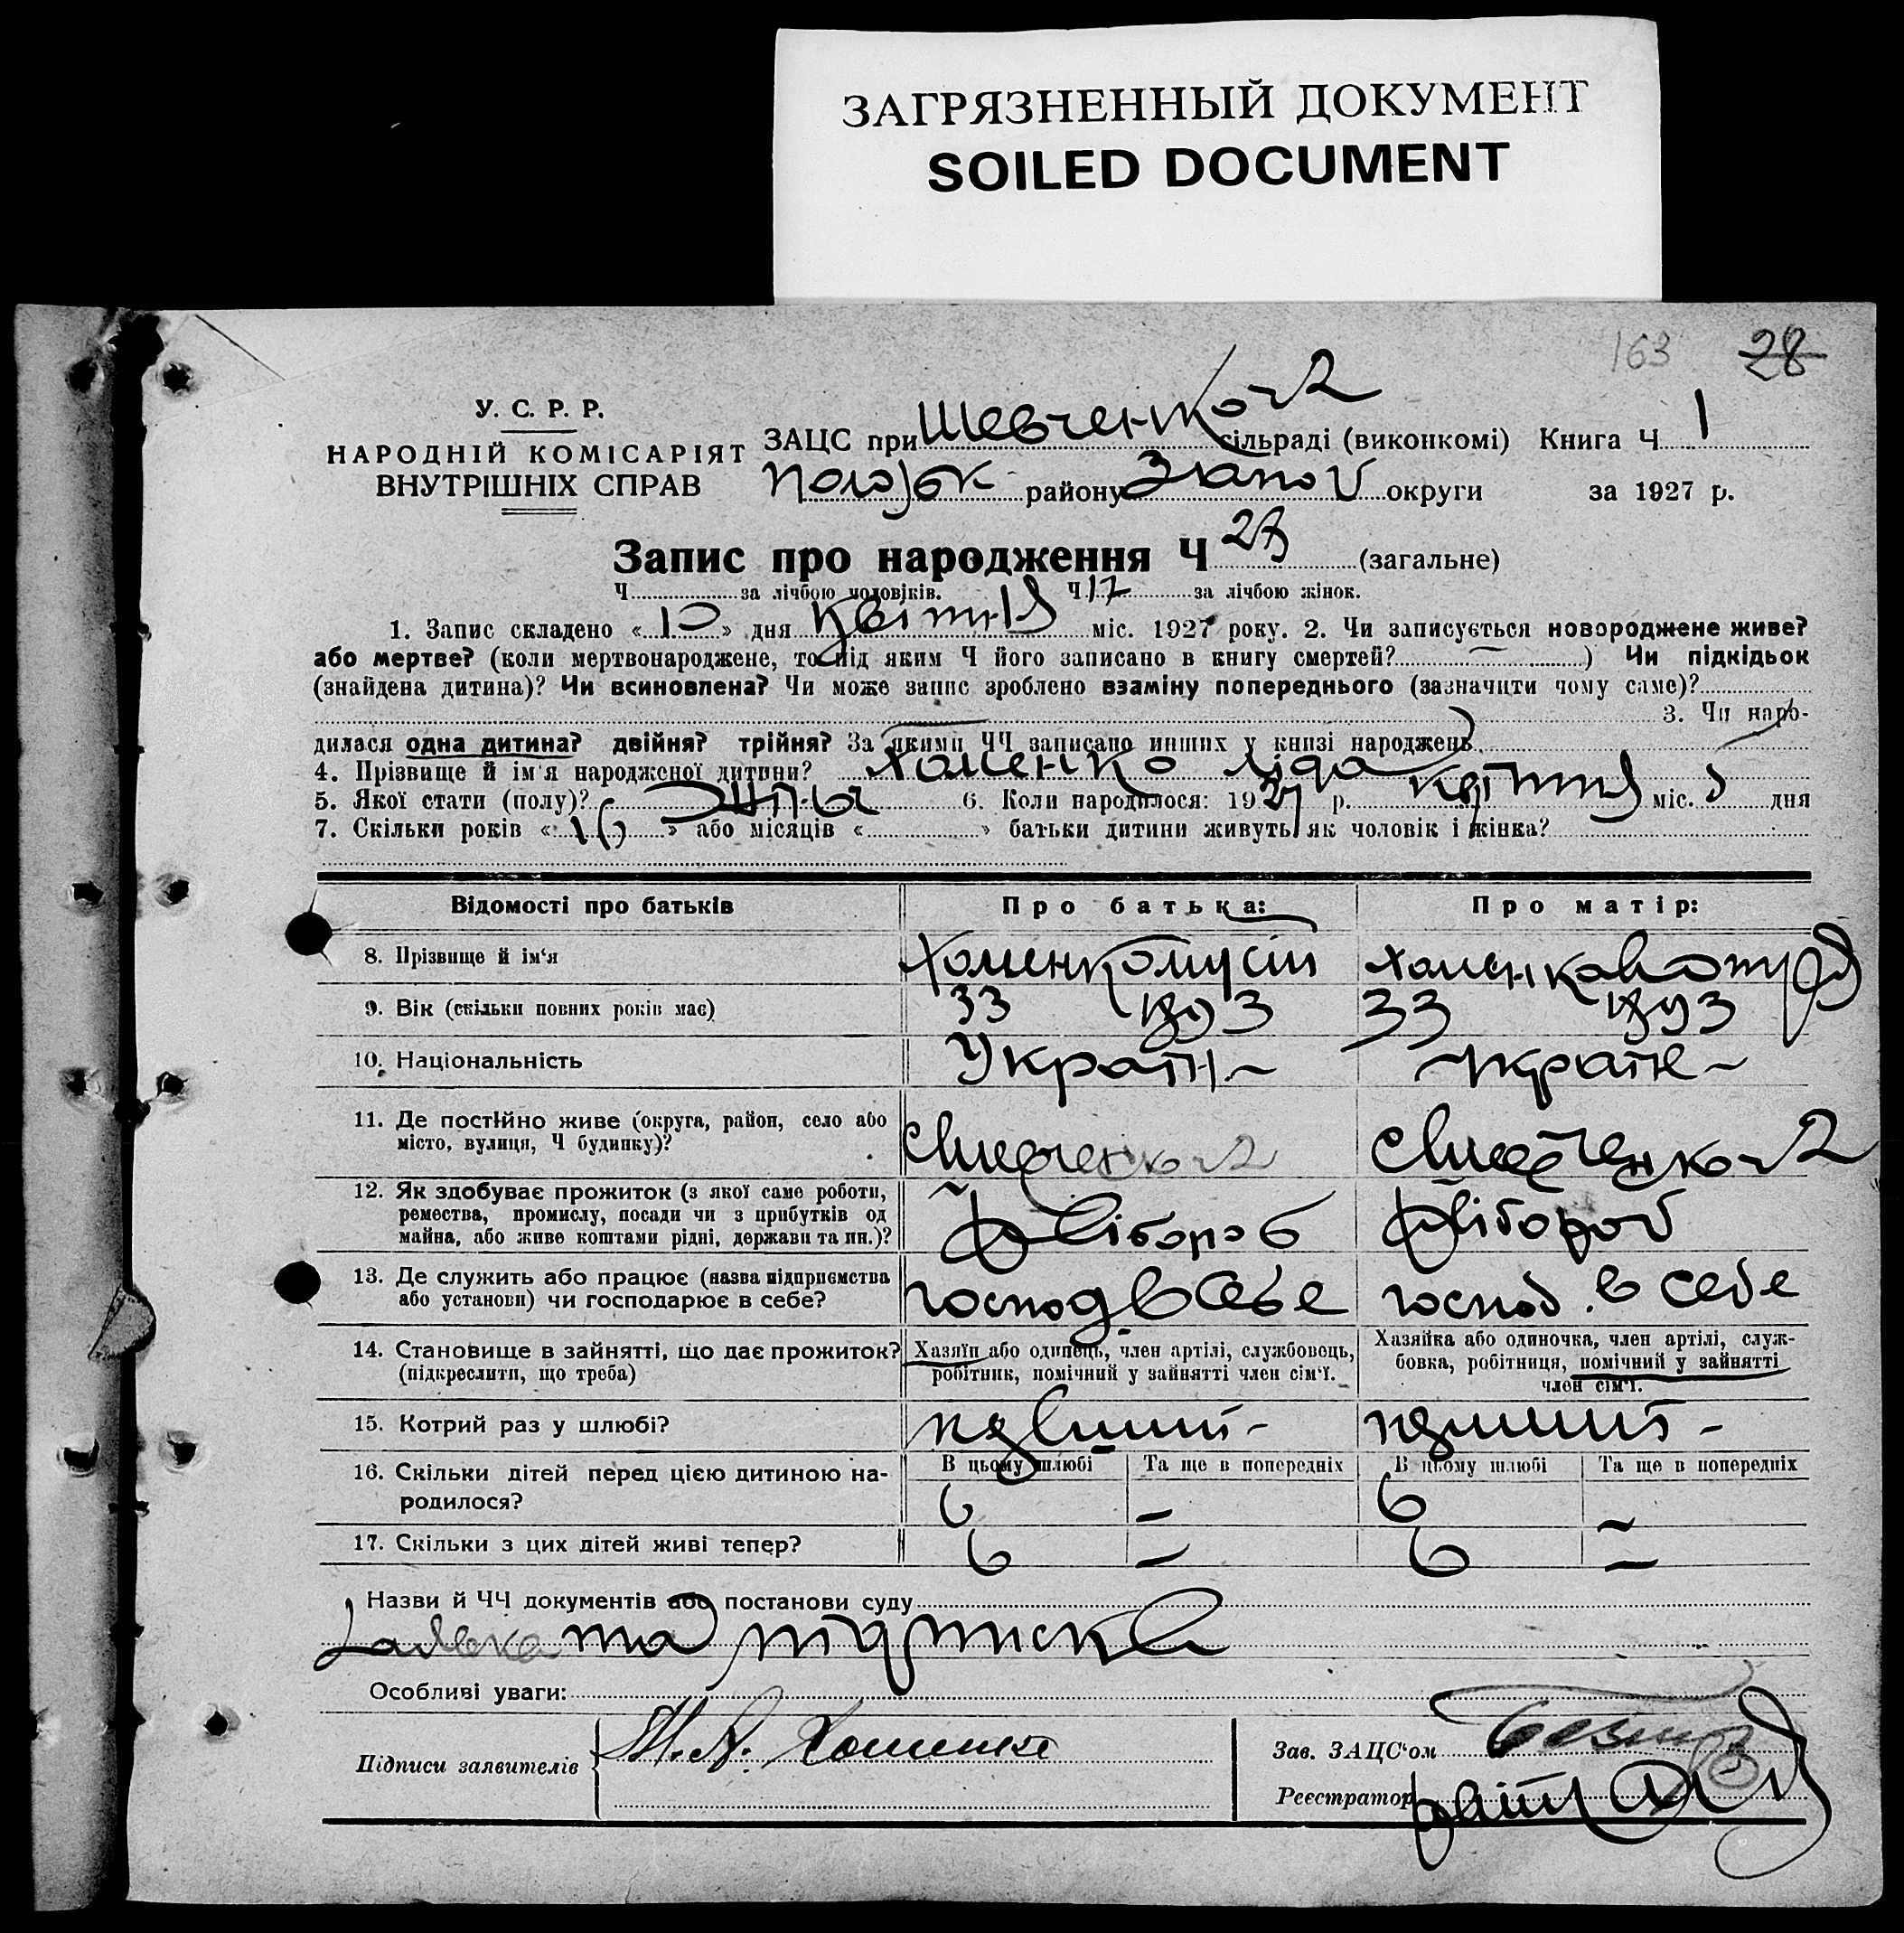 ЗАГРЯЗНЕННЫЙ ДОКУМЕНТ
SOILED DOCUMENT
163 28
У. С. Р. Р.
НАРОДНІЙ КОМІСАРІЯТ
ВНУТРІШНІХ СПРАВ
ЗАЦС при Шевченко сільраді (виконкомі) Книга Ч 1
району округи за 1927 р.
Запис про народження Ч (загальне)
Ч за лічбою чоловіків. Ч 17 за лічбою жінок.
1. Запис складено «10» дня квітня міс. 1927 року. 2. Чи записується новороджене живе?
або мертве? (коли мертвонароджене, то під яким Ч його записано в книгу смертей? —) Чи підкідьок
(знайдена дитина)? Чи всиновлена? Чи може запис зроблено взаміну попереднього (зазначити чому саме)?
3. Чи наро-
дилася одна дитина? двійня? трійня? За якими ЧЧ записано инших у книзі народжень
4. Прізвище й ім'я народженої дитини? Хоменко Ліда
5. Якої стати (полу)? 6. Коли народилося: 1927 р. квітня міс. 5 дня
7. Скільки років «16» або місяців « » батьки дитини живуть як чоловік і жінка?
Відомості про батьків Про батька: Про матір:
8. Прізвище й ім'я Хоменко Мусій Хоменкова
9. Вік (скільки повних років має) 33 1893 33 1893
10. Національність Україн Україн
11. Де постійно живе (округа, район, село або
місто, вулиця, Ч будинку)?
12. Як здобуває прожиток (з якої саме роботи,
ремества, промислу, посади чи з прибутків од
майна, або живе коштами рідні, держави та ин.)? хлібороб хлібороб
13. Де служить або працює (назва підприємства
або установи) чи господарює в себе? господ в себе господ. в себе
14. Становище в зайнятті, що дає прожиток?
(підкреслити, що треба)
Хазяїн або одинець, член артілі, службовець,
робітник, помічний у зайнятті член сім'ї.
Хазяйка або одиночка, член артілі, служ-
бовка, робітниця, помічний у зайнятті
член сім'ї.
15. Котрий раз у шлюбі?
16. Скільки дітей перед цією дитиною на-
родилося?
В цьому шлюбі Та ще в попередніх В цьому шлюбі Та ще в попередніх
6 — 6 —
17. Скільки з цих дітей живі тепер? 6 — 6 —
Назви й ЧЧ документів або постанови суду
та підписка
Особливі уваги:
Підписи заявителів М. Хоменко
Зав. ЗАЦС'ом
Реєстратор